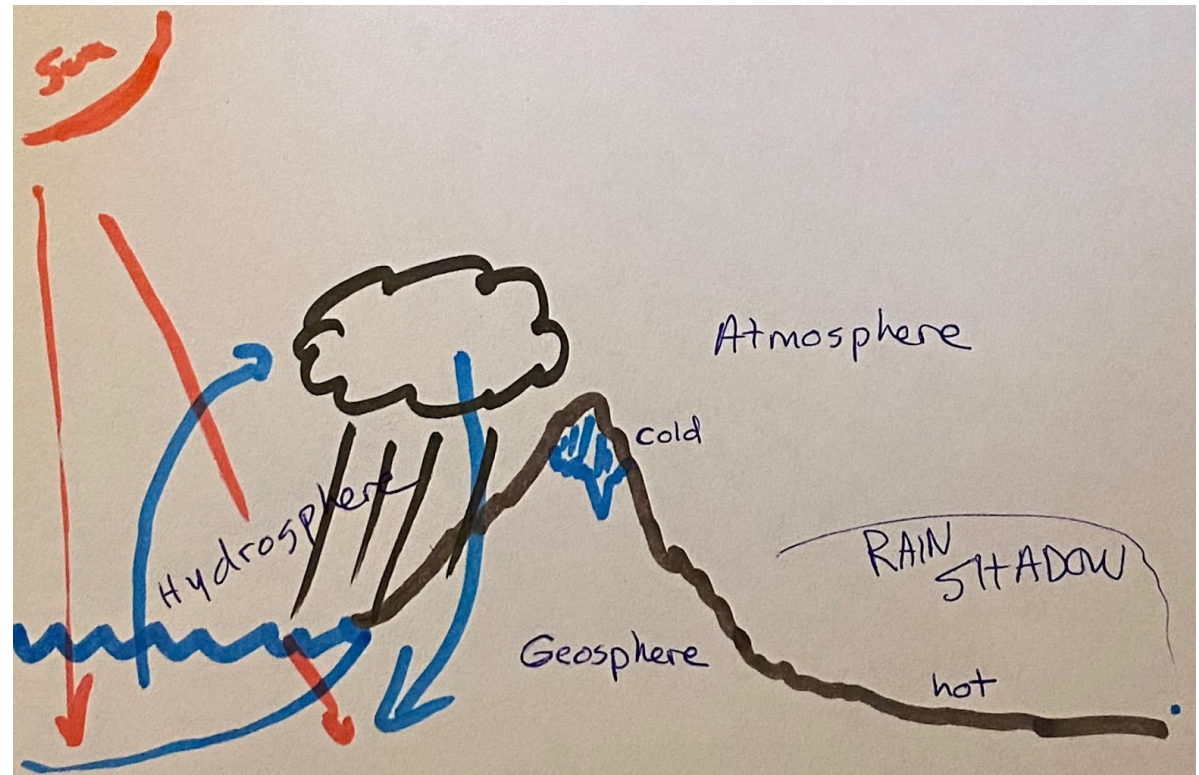 Sun
Atmosphere
cold
Hydrosphere
RAIN
SHADOW
Geosphere
hot